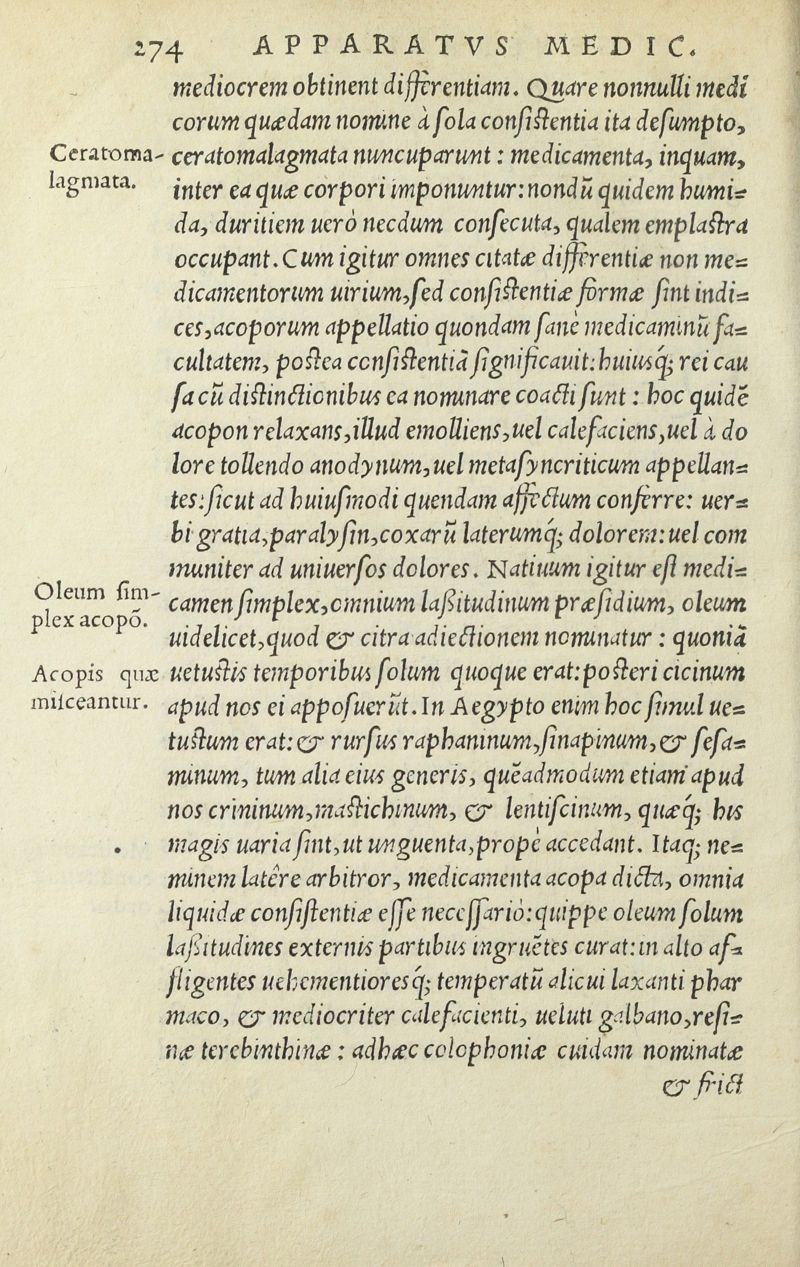 274 APPARATVS MEDIC.
mediocrem obtinent differentiam. Quare nonnulli medi
corum quædam nomine à ſola conſiſtentia ita deſumpto,
Ceratoma-
lagmata.
ceratomalagmata nuncuparunt: medicamenta, inquam,
inter ea quæ corpori imponuntur: nondũ quidem humi=
da, duritiem uerò necdum conſecuta, qualem emplaſtra
occupant. Cum igitur omnes citatæ differentiæ non me=
dicamentorum uirium, ſed conſiſtentiæ formæ ſint indi=
ces, acoporum appellatio quondam ſanè medicaminũ fa=
cultatem, poſtea conſiſtentiã ſignificauit: huiusq; rei cau
ſa cũ diſtinctionibus ea nominare coacti ſunt: hoc quidẽ
acopon relaxans, illud emolliens, uel calefaciens, uel à do
lore tollendo anodynum, uel metaſyncriticum appellan=
tes: ſicut ad huiuſmodi quendam affectum conferre: uer=
bi gratia, paralyſin, coxarũ laterumq; dolorem: uel com
muniter ad uniuerſos dolores. Natiuum igitur eſt medi=
Oleum ſim-
plex acopõ.
camen ſimplex, omnium laſsitudinum præſidium, oleum
uidelicet, quod & citra adiectionem nominatur: quoniã
Acopis quæ
miſceantur.
uetuſtis temporibus ſolum quoque erat: poſteri cicinum
apud nos ei appoſuerũt. In Aegypto enim hoc ſimul ue=
tuſtum erat: & rurſus raphaninum, ſinapinum, & ſeſa=
minum, tum alia eius generis, quẽadmodum etiam apud
nos crininum, maſtichinum, & lentiſcinum, quæq; his
magis uaria ſint, ut unguenta, propè accedant. Itaq; ne=
minem latêre arbitror, medicamenta acopa dicta, omnia
liquidæ conſiſtentiæ eſſe neceſſariò: quippe oleum ſolum
laſsitudines externis partibus ingruẽtes curat: in alto af=
fligentes uehementioresq; temperatũ alicui laxanti phar
maco, & mediocriter calefacienti, ueluti galbano, reſi=
næ terebinthinæ: adhæc colophoniæ cuidam nominatæ
& frict